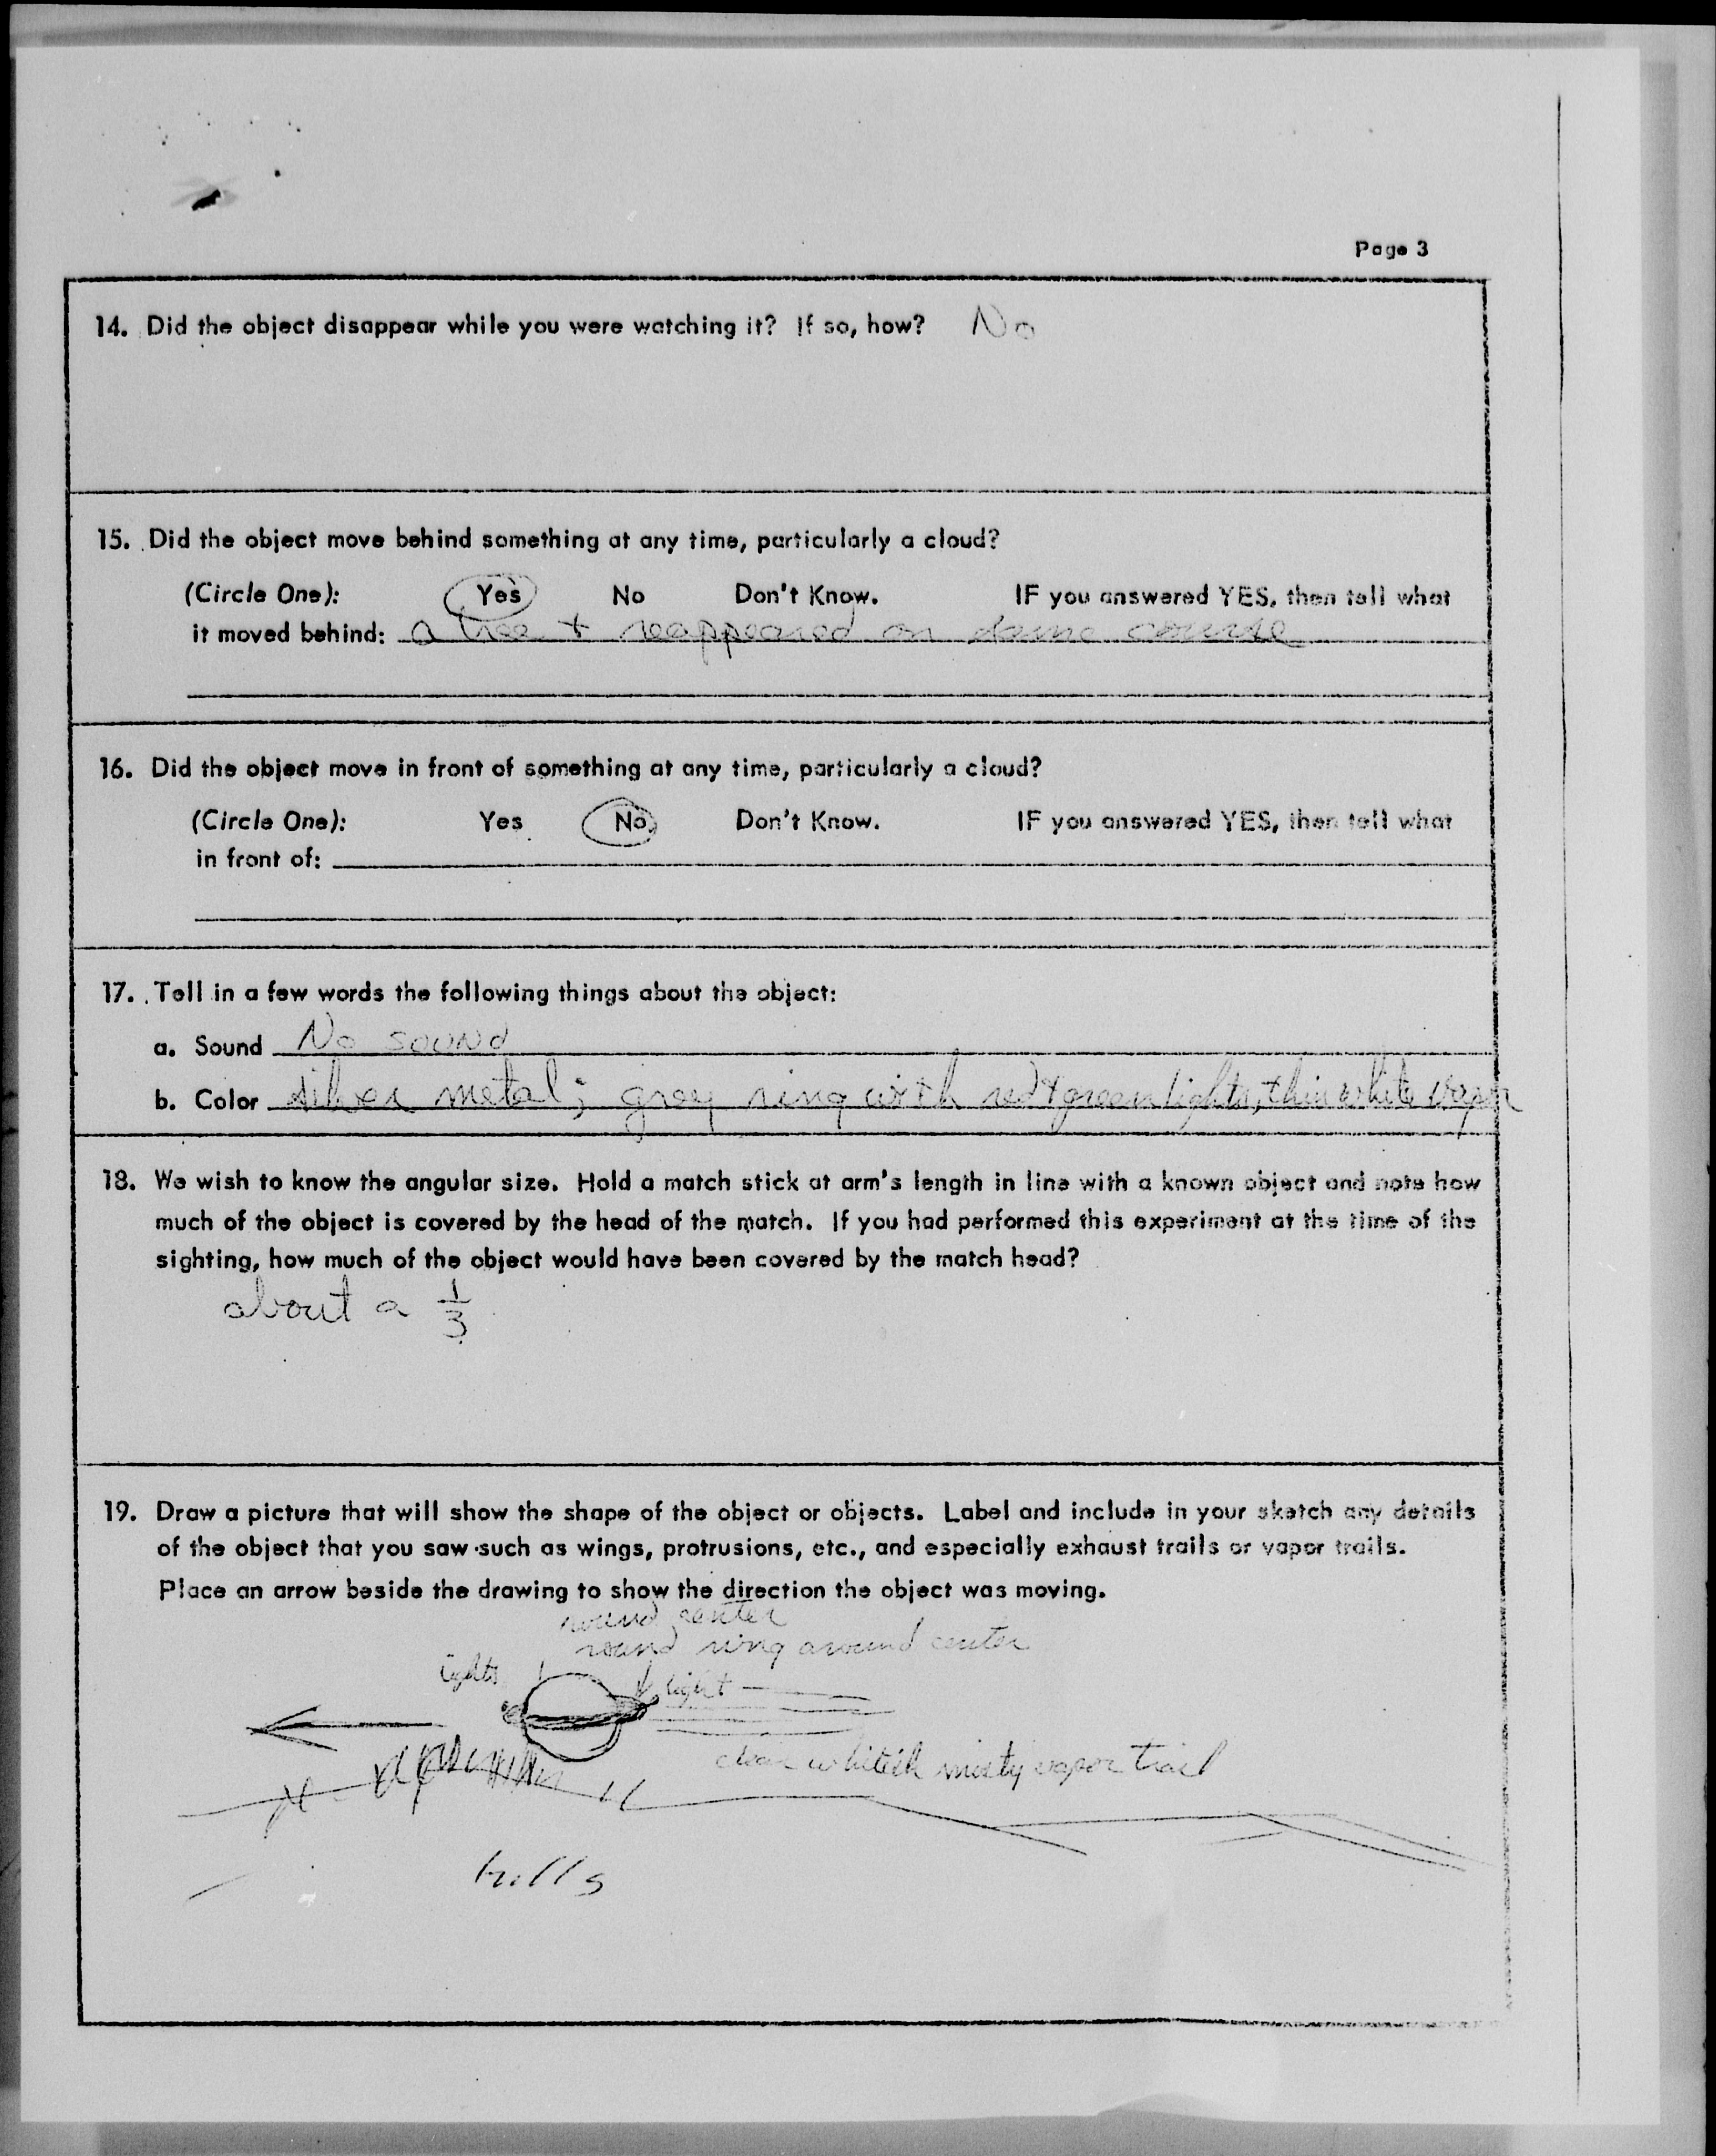 Page 3
14. Did the object disappear while you were watching it? If so, how? No
15. Did the object move behind something at any time, particularly a cloud?
(Circle One): Yes No Don't Know. IF you answered YES, then tell what
it moved behind: a tree + reappeared on same course
16. Did the object move in front of something at any time, particularly a cloud?
(Circle One): Yes No Don't Know. IF you answered YES, then tell what
in front of:
17. Tell in a few words the following things about the object:
a. Sound No sound
b. Color silver metal; grey ring with red + green lights, thin white vapor
18. We wish to know the angular size. Hold a match stick at arm's length in line with a known object and note how
much of the object is covered by the head of the match. If you had performed this experiment at the time of the
sighting, how much of the object would have been covered by the match head?
about a 1/3
19. Draw a picture that will show the shape of the object or objects. Label and include in your sketch any details
of the object that you saw such as wings, protrusions, etc., and especially exhaust trails or vapor trails.
Place an arrow beside the drawing to show the direction the object was moving.
round center
round ring around center
lights
light
clear whiteish misty vapor trail
hills